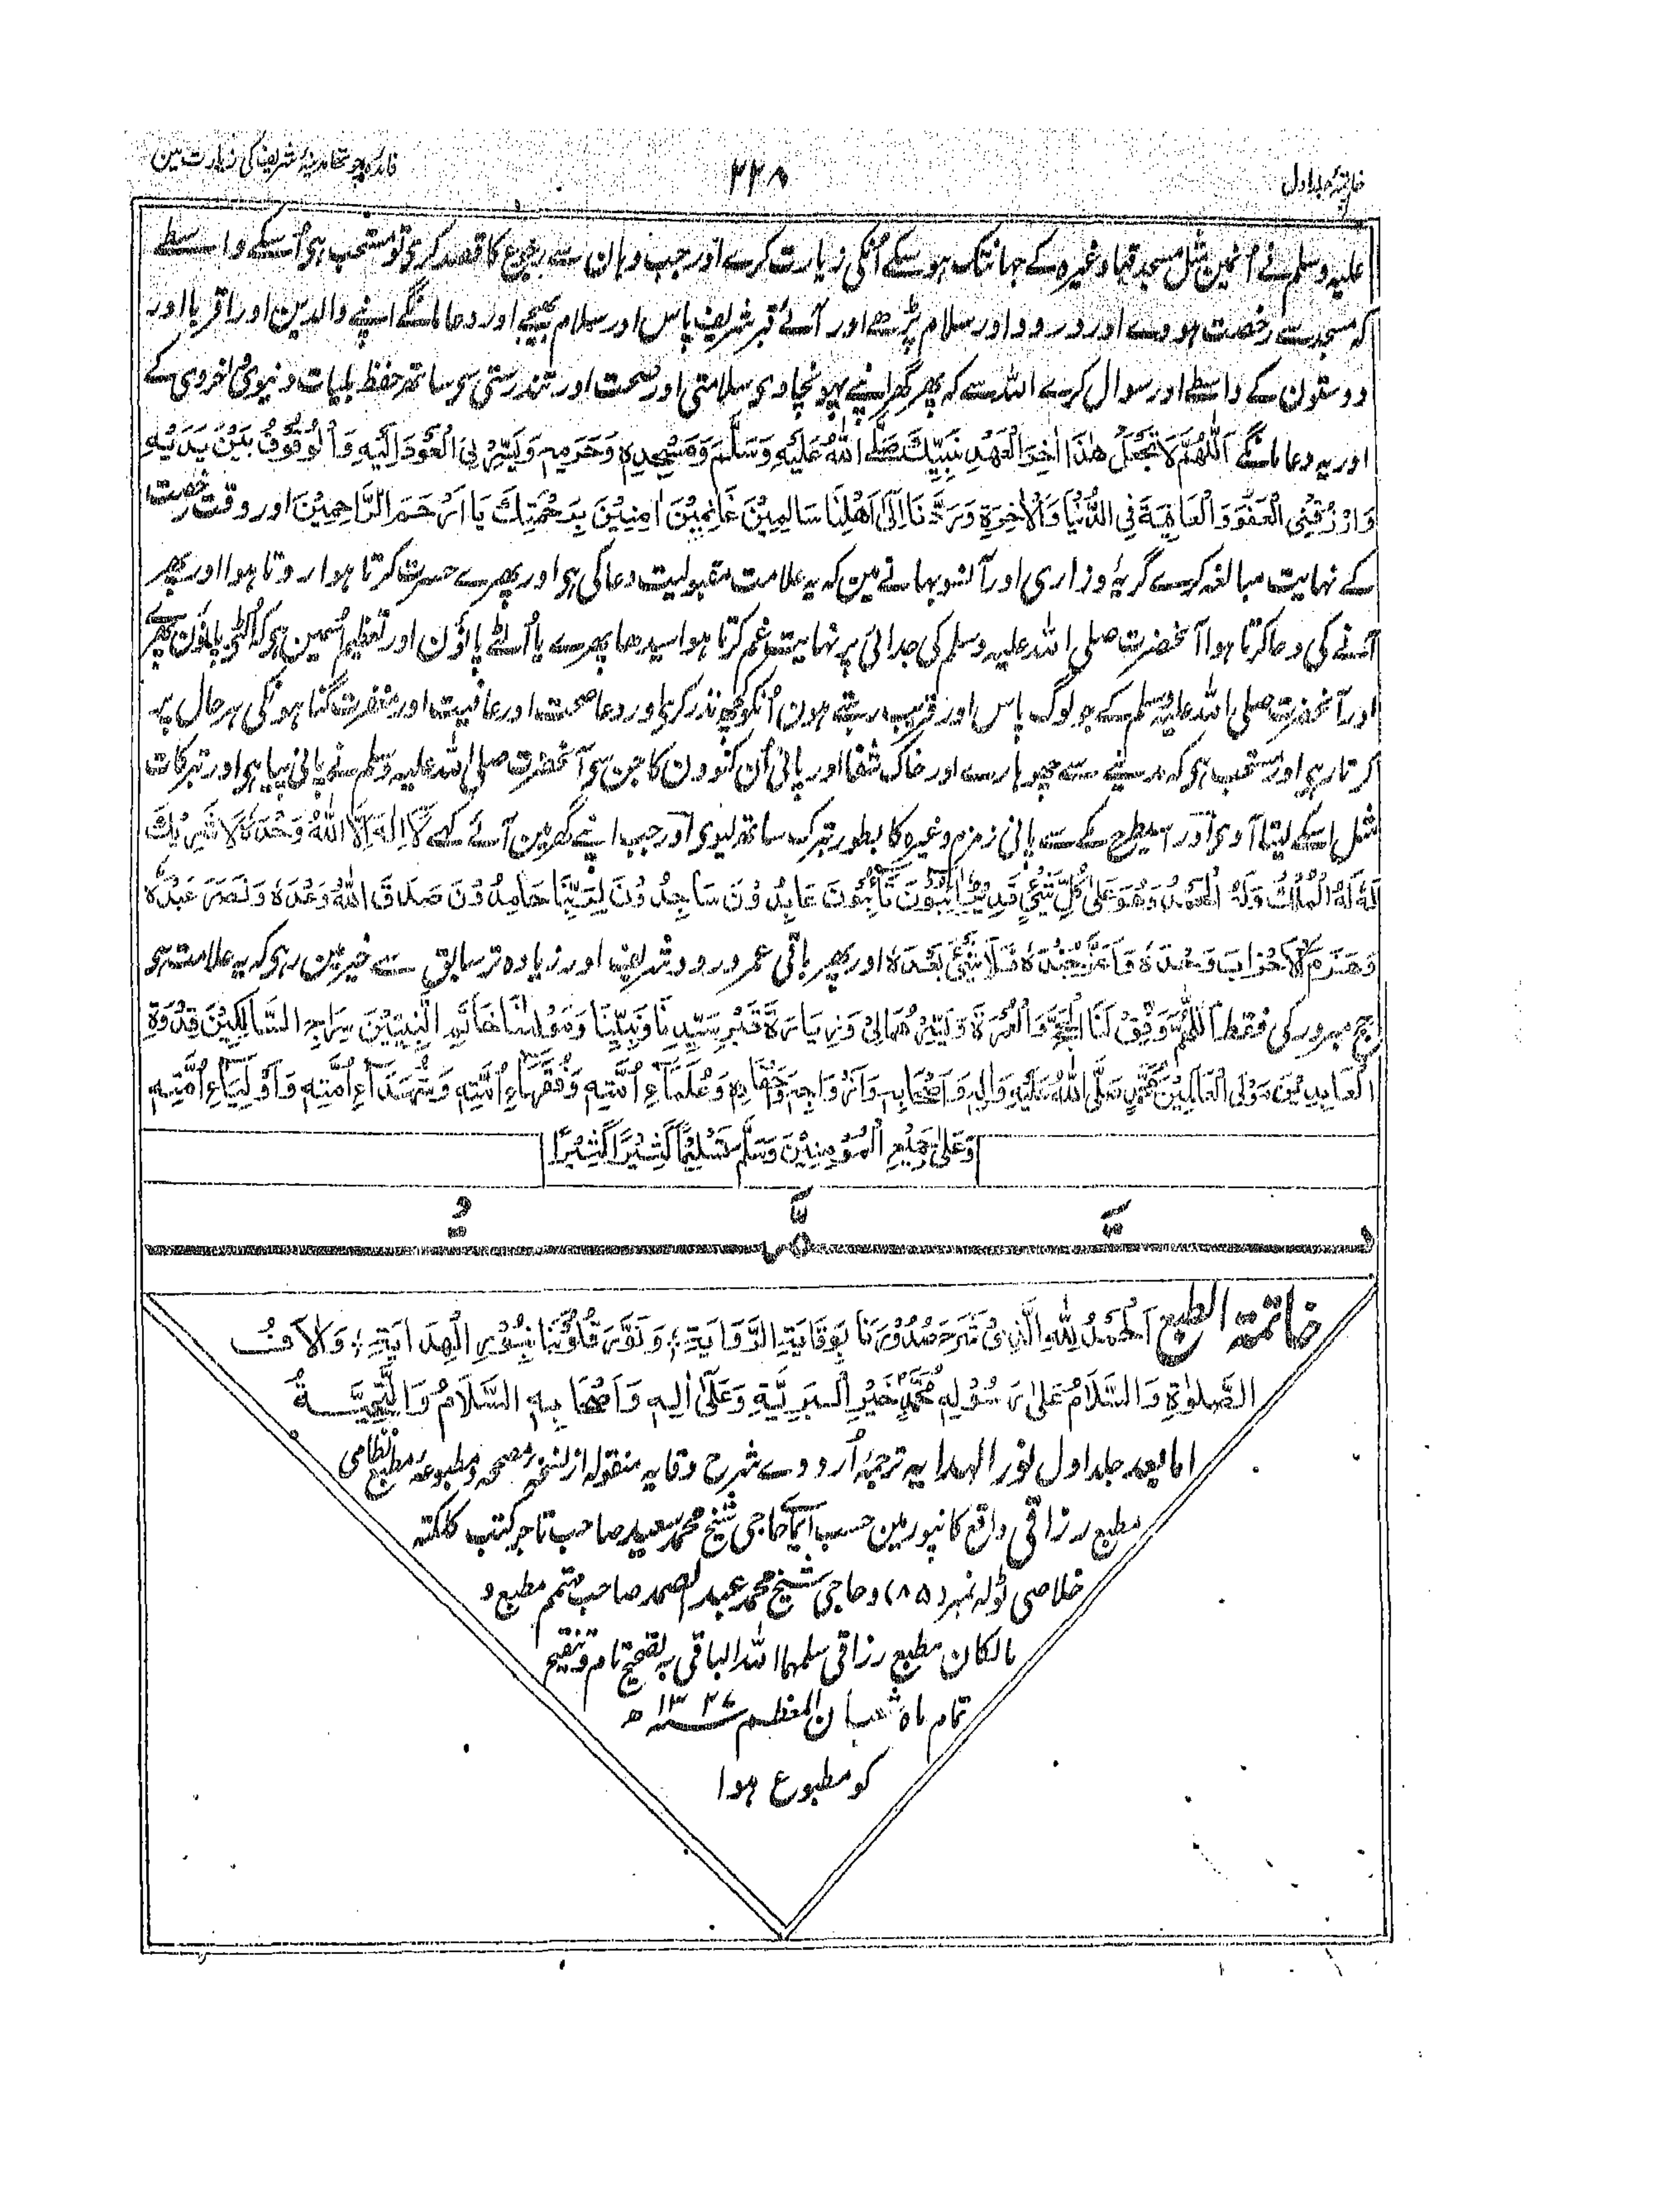 خاتمہ جلد اول
۲۲۸
فائدہ چوتھا مدینہ شریف کی زیارت مین
علیہ وسلم نے اُنمین مثل مسجد قبا وغیرہ کے جہانتک ہو سکے اُنکی زیارت کرے اور جب وہان سے رجوع کا قصد کرے تو مستحب ہی اُسکے واسطے
کہ مسجد سے رخصت ہووے اور درود اور سلام پڑھے اور آئے قبر شریف پاس اور سلام بھیجے اور دعا مانگے اپنے والدین اور اقربا اور
دوستون کے واسطے اور سوال کرے اللہ سے کہ پھر گھر اپنے پہونچاوے سلامتی اور صحت اور تندرستی سے ساتھ حفظ بلیات دنیوی اخروی کے
اور یہ دعا مانگے اَللّٰهُمَّ لَا تَجْعَلْ هٰذَا اٰخِرَ الْعَهْدِ نَبِيِّكَ صَلَّى اللّٰهُ عَلَيْهِ وَسَلَّمَ وَمَسْجِدِهٖ وَحَرَمِهٖ وَيَسِّرْ لِيَ الْعَوْدَ اِلَيْهِ وَالْوُقُوْفَ بَيْنَ يَدَيْهِ
وَارْزُقْنِي الْعَفْوَ وَالْعَافِيَةَ فِي الدُّنْيَا وَالْاٰخِرَةِ وَرُدَّنَا اِلٰى اَهْلِنَا سَالِمِيْنَ غَانِمِيْنَ اٰمِنِيْنَ بِرَحْمَتِكَ يَا اَرْحَمَ الرَّاحِمِيْنَ اور وقت رخصت
کے نہایت مبالغہ کرے گریہ وزاری اور آنسو بہانے مین کہ یہ علامت مقبولیت دعا کی ہی اور پھرے حسرت کرتا ہوا روتا ہوا اور پھر
آنے کی دعا کرتا ہوا آنحضرت صلی اللہ علیہ وسلم کی جدائی پر نہایت غم کرتا ہوا سیدھا پھرے یا اُلٹے پاؤن اور تعظیم اُسمین ہی کہ اُلٹے پاؤن پھرے
اور آنحضرت صلی اللہ علیہ وسلم کے جو لوگ پاس اور قریب رہتے ہون اُنکو کچھ نذر کرے اور دعا صحت اور عافیت اور مغفرت گناہونکی ہر حال پر
کرتا رہے اور مستحب ہی کہ مدینے سے چھوہارے اور خاک شفا اور پانی اُن کنوون کا جن سے آنحضرت صلی اللہ علیہ وسلم نے پانی پیا ہی اور تبرکات
مثل اسکے لیتا آوے اور اسیطرح مکے سے پانی زمزم وغیرہ کا بطور تبرک ساتھ لیوے اور جب اپنے گھر مین آئے کہے لَا اِلٰهَ اِلَّا اللّٰهُ وَحْدَهٗ لَا شَرِيْكَ
لَهٗ لَهُ الْمُلْكُ وَلَهُ الْحَمْدُ وَهُوَ عَلٰى كُلِّ شَيْءٍ قَدِيْرٌ اٰئِبُوْنَ تَائِبُوْنَ عَابِدُوْنَ سَاجِدُوْنَ لِرَبِّنَا حَامِدُوْنَ صَدَقَ اللّٰهُ وَعْدَهٗ وَنَصَرَ عَبْدَهٗ
وَهَزَمَ الْاَحْزَابَ وَحْدَهٗ وَاَعَزَّ جُنْدَهٗ فَلَا شَيْءَ بَعْدَهٗ اور پھر باقی عمر درود شریف اور زیادہ تر سابق سے خیر مین رہے کہ یہ علامت ہے
حج مبرور کی فقط اَللّٰهُمَّ وَفِّقْ لَنَا الْحَجَّ وَالْعُمْرَةَ وَيَسِّرْهُمَا لِيْ وَزِيَارَةَ قَبْرِ سَيِّدِنَا وَنَبِيِّنَا وَمَوْلٰنَا خَاتَمِ النَّبِيِّيْنَ سِرَاجِ السَّالِكِيْنَ قُدْوَةِ
الْعَابِدِيْنَ مَوْلَى الْعَالَمِيْنَ مُحَمَّدٍ صَلَّى اللّٰهُ عَلَيْهِ وَاٰلِهٖ وَاَصْحَابِهٖ وَاَزْوَاجِهٖ وَعُلَمَاءِ اُمَّتِهٖ وَفُقَهَاءِ اُمَّتِهٖ وَشُهَدَاءِ اُمَّتِهٖ وَاَوْلِيَاءِ اُمَّتِهٖ
وَعَلٰى جَمِيْعِ الْمُؤْمِنِيْنَ وَسَلَّمَ تَسْلِيْمًا كَثِيْرًا كَثِيْرًا
خاتمۃ الطبع اَلْحَمْدُ لِلّٰهِ الَّذِيْ شَرَحَ صُدُوْرَنَا بِوِقَايَةِ الرِّوَايَةِ وَنَوَّرَ قُلُوْبَنَا بِنُوْرِ الْهِدَايَةِ
الصَّلٰوةِ وَالسَّلَامُ عَلٰى رَسُوْلِهٖ مُحَمَّدٍ خَيْرِ الْبَرِيَّةِ وَعَلٰى اٰلِهٖ وَاَصْحَابِهِ السَّلَامُ وَالتَّحِيَّةُ
اما بعد جلد اول نور الہدایہ ترجمۂ اردوے شرح وقایہ منقولہ از نسخہ مصححہ و مطبوعہ مطبع نظامی
مطبع رزاقی واقع کانپور مین حسب ایمائے حاجی شیخ محمد سعید صاحب تاجر کتب کلکتہ
خلاصی ٹولہ نمبر (۸۵) و حاجی شیخ محمد عبد الصمد صاحب مہتمم مطبع و
مالکان مطبع رزاقی سلمہما اللہ الباقی بہ تصحیح تام و تنقیح
تمام ماہ شعبان المعظم ۱۳۲۷ سنہ ھ
کو مطبوع ہوا